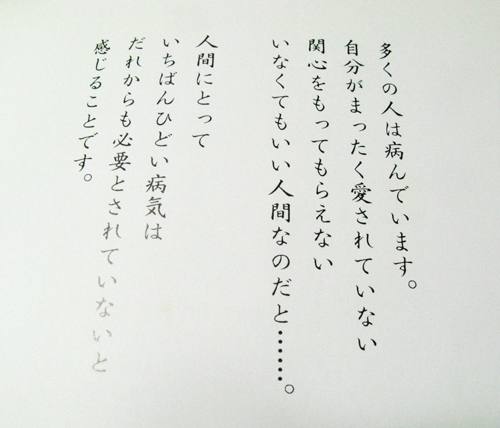 多くの人は病んでいます。
自分がまったく愛されていない
関心をもってもらえない
いなくてもいい人間なのだと……。
人間にとって
いちばんひどい病気は
だれからも必要とされていないと
感じることです。